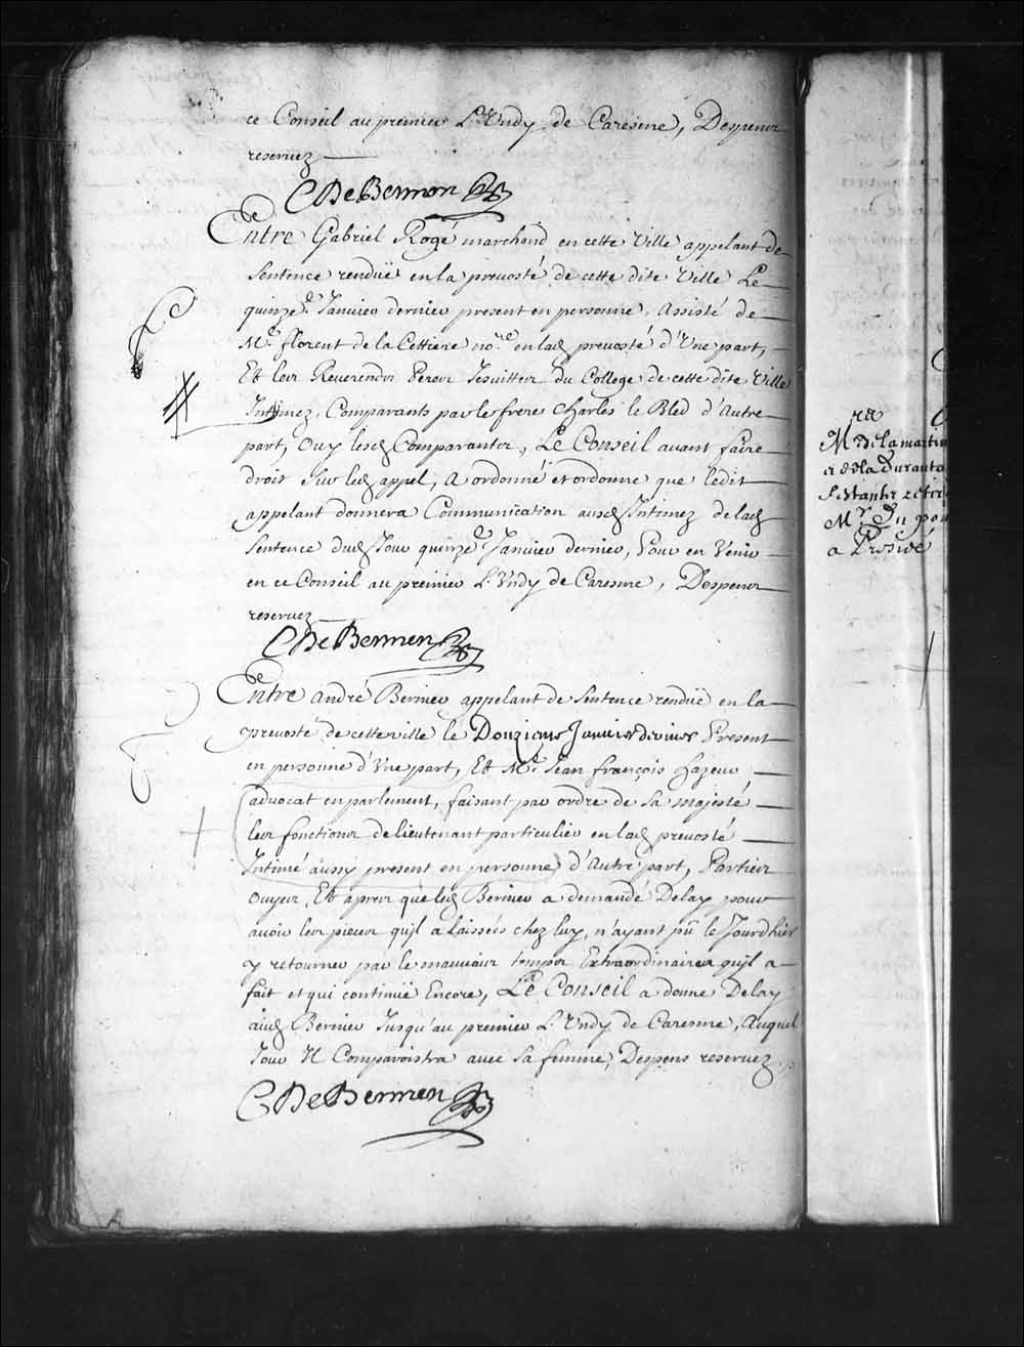 ce Conseil au premier Lundy de Caresme, Despens
reservez
C De Bermen
Entre Gabriel Rogé marchand en cette Ville appelant de
Sentence rendüe en la prevosté de cette dite Ville Le
quinze.e Janvier dernier present en personne, Assisté de
M.e florent de la Cettiere no.re en lad prevosté d'Une part,
Et les Reverends Peres Jesuittes du College de cette dite Ville
Intimez, Comparants par le frere Charles le Bled d'Autre
part, Ouy lesd Comparantes, Le Conseil avant faire
droit Sur led appel, A ordonné et ordonne que ledit
appelant donnera Communication ausd Intimez de lad
Sentence dud Jour quinze.e Janvier dernier, Pour en Venir
en ce Conseil au premier Lundy de Caresme, Despens
reservez
C De Bermen
Entre André Bernier appelant de Sentence rendüe en la
prevosté de cette ville le Douziéme Janvier dernier Present
en personne d'Une part, Et M.e Jean françois hazeur
advocat en parlement, faisant par ordre de Sa majesté
les fonctions de lieutenant particulier en lad prevosté
Intimé aussy present en personne d'Autre part, Parties
Ouyes, Et apres que led Bernier a demandé Delay pour
avoir les pieces qu'il a laissées chez luy, n'ayant pû le Jourdhier
y retourner par le mauvais temps Extraordinaire qu'il a
fait et qui continüe Encore, Le Conseil a donné Delay
aud Bernier Jusqu'au premier Lundy de Caresme, Auquel
Jour Il Comparoistra avec sa femme, Despens reservez
C De Bermen
M.rs de la martin
et de la Duranta
M.r Du pon
a Presidé